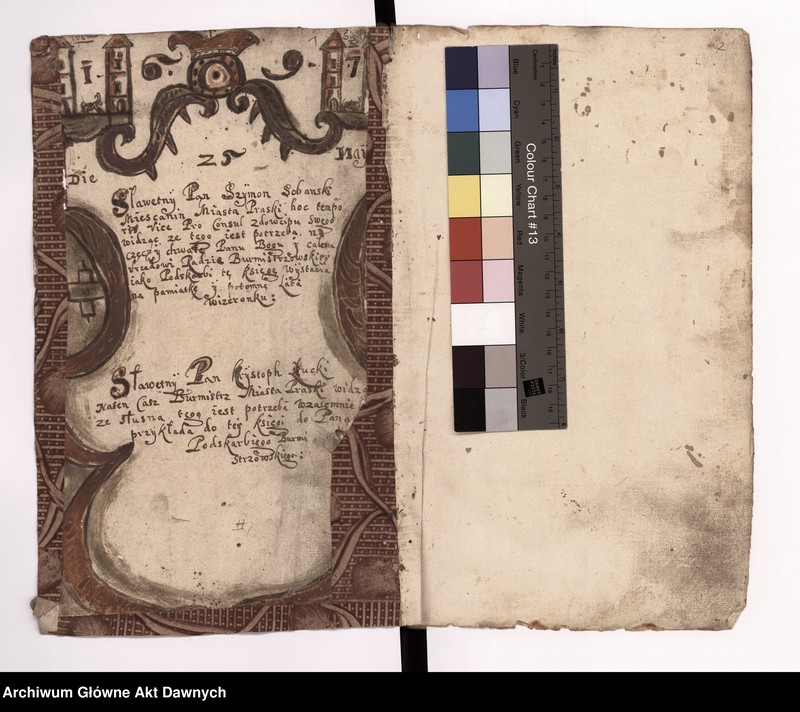 1 7
Die 25 Maÿ
Sławetny Pan Szÿmon Sobanski
Miesczanin Miasta Praski hoc tempo
ris Vice Pro Consul zdowcipu swego
widząc ze tego iest potrzeba, na
czesc y chwałę Panu Bogu y całemu
vrzędowi Radzie Burmistrzowskieÿ
iako Podskarbi tę księgę Wystawia
na pamiatkę ÿ potomne Lata
Wizeronku:
Sławetnÿ Pan Krÿstoph Łucki
Naten Czas Burmistrz Miasta Praski widzą
ze słuszna tego iest potrzeba wzaiemnie
przykłada do teÿ księgi do Pana
Podskarbiego Burmi
strzowskiego:
2
Colour Chart #13
Centimetres
Blue
Cyan
Green
Yellow
Red
Magenta
White
3/Color
Black
Archiwum Główne Akt Dawnych